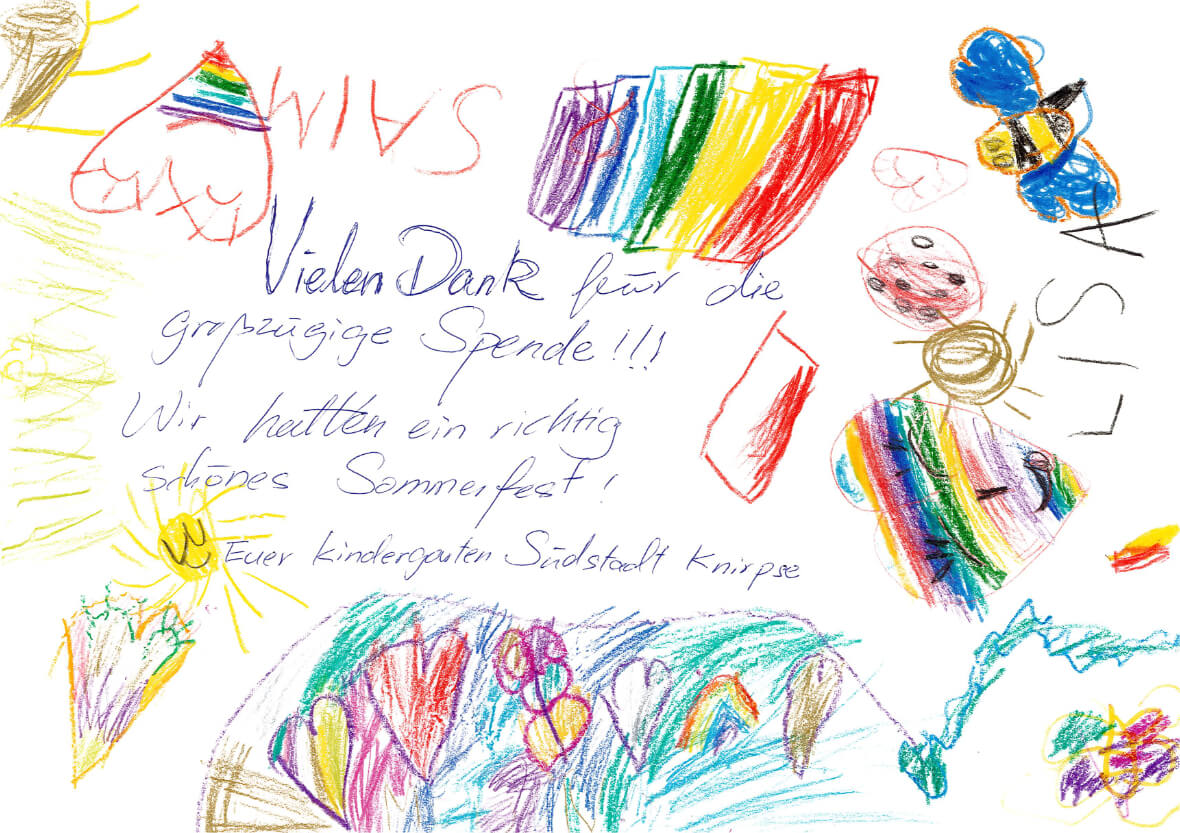 SAIM
Vielen Dank für die
großzügige Spende!!!
Wir hatten ein richtig
schönes Sommerfest!
Euer Kindergarten Südstadt Knirpse
LISA